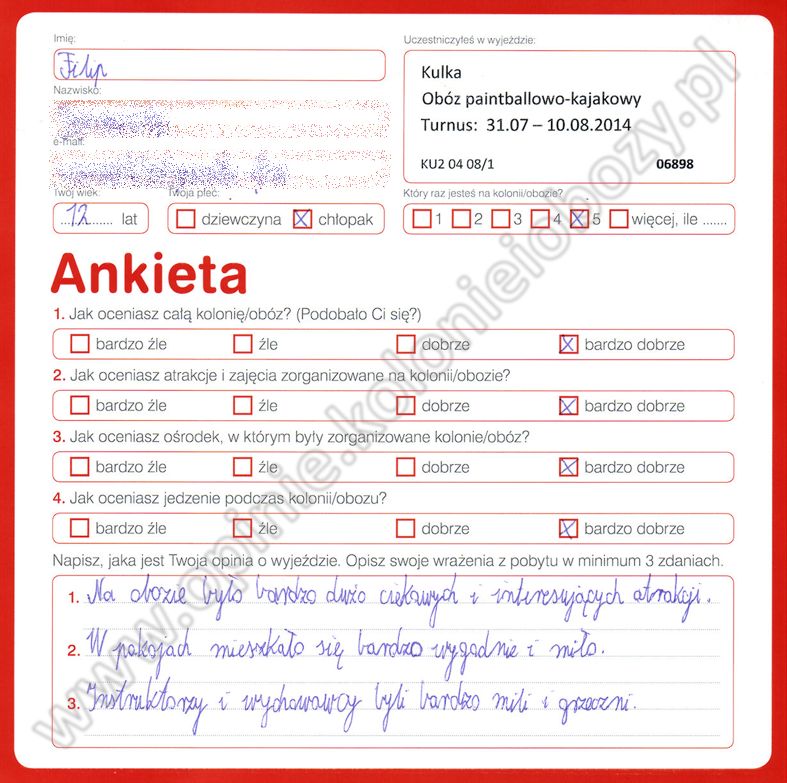 Imię:
Filip
Nazwisko:
e-mail:
Twój wiek:
12 lat
Twoja płeć:
dziewczyna chłopak
Uczestniczyłeś w wyjeździe:
Kulka
Obóz paintballowo-kajakowy
Turnus: 31.07 – 10.08.2014
KU2 04 08/1 06898
Który raz jesteś na kolonii/obozie?
1 2 3 4 5 więcej, ile .......
Ankieta
1. Jak oceniasz całą kolonię/obóz? (Podobało Ci się?)
bardzo źle źle dobrze bardzo dobrze
2. Jak oceniasz atrakcje i zajęcia zorganizowane na kolonii/obozie?
bardzo źle źle dobrze bardzo dobrze
3. Jak oceniasz ośrodek, w którym były zorganizowane kolonie/obóz?
bardzo źle źle dobrze bardzo dobrze
4. Jak oceniasz jedzenie podczas kolonii/obozu?
bardzo źle źle dobrze bardzo dobrze
Napisz, jaka jest Twoja opinia o wyjeździe. Opisz swoje wrażenia z pobytu w minimum 3 zdaniach.
1. Na obozie było bardzo dużo ciekawych i interesujących atrakcji.
2. W pokojach mieszkało się bardzo wygodnie i miło.
3. Instruktorzy i wychowawcy byli bardzo mili i grzeczni.
www.opinie.kolonieiobozy.pl